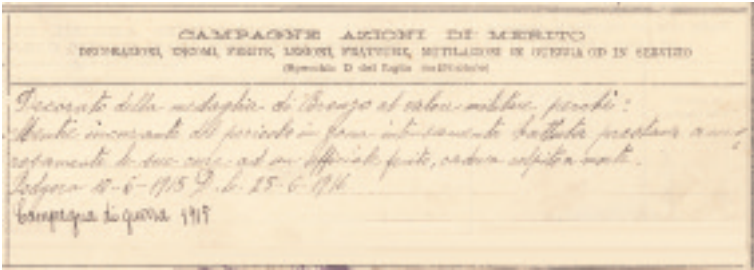 CAMPAGNE AZIONI DI MERITO
DECORAZIONI, ENCOMI, FERITE, LESIONI, FRATTURE, MUTILAZIONI IN GUERRA OD IN SERVIZIO
(Specchio D del foglio matricolare)
Decorato della medaglia di Bronzo al valore militare perché:
Mentre incurante del pericolo in zona intensamente battuta prestava amo,
rosamente le sue cure ad un ufficiale ferito, cadeva colpito a morte.
Podgora 10-6-1915 D. L. 25-6-1916
Campagna di guerra 1915